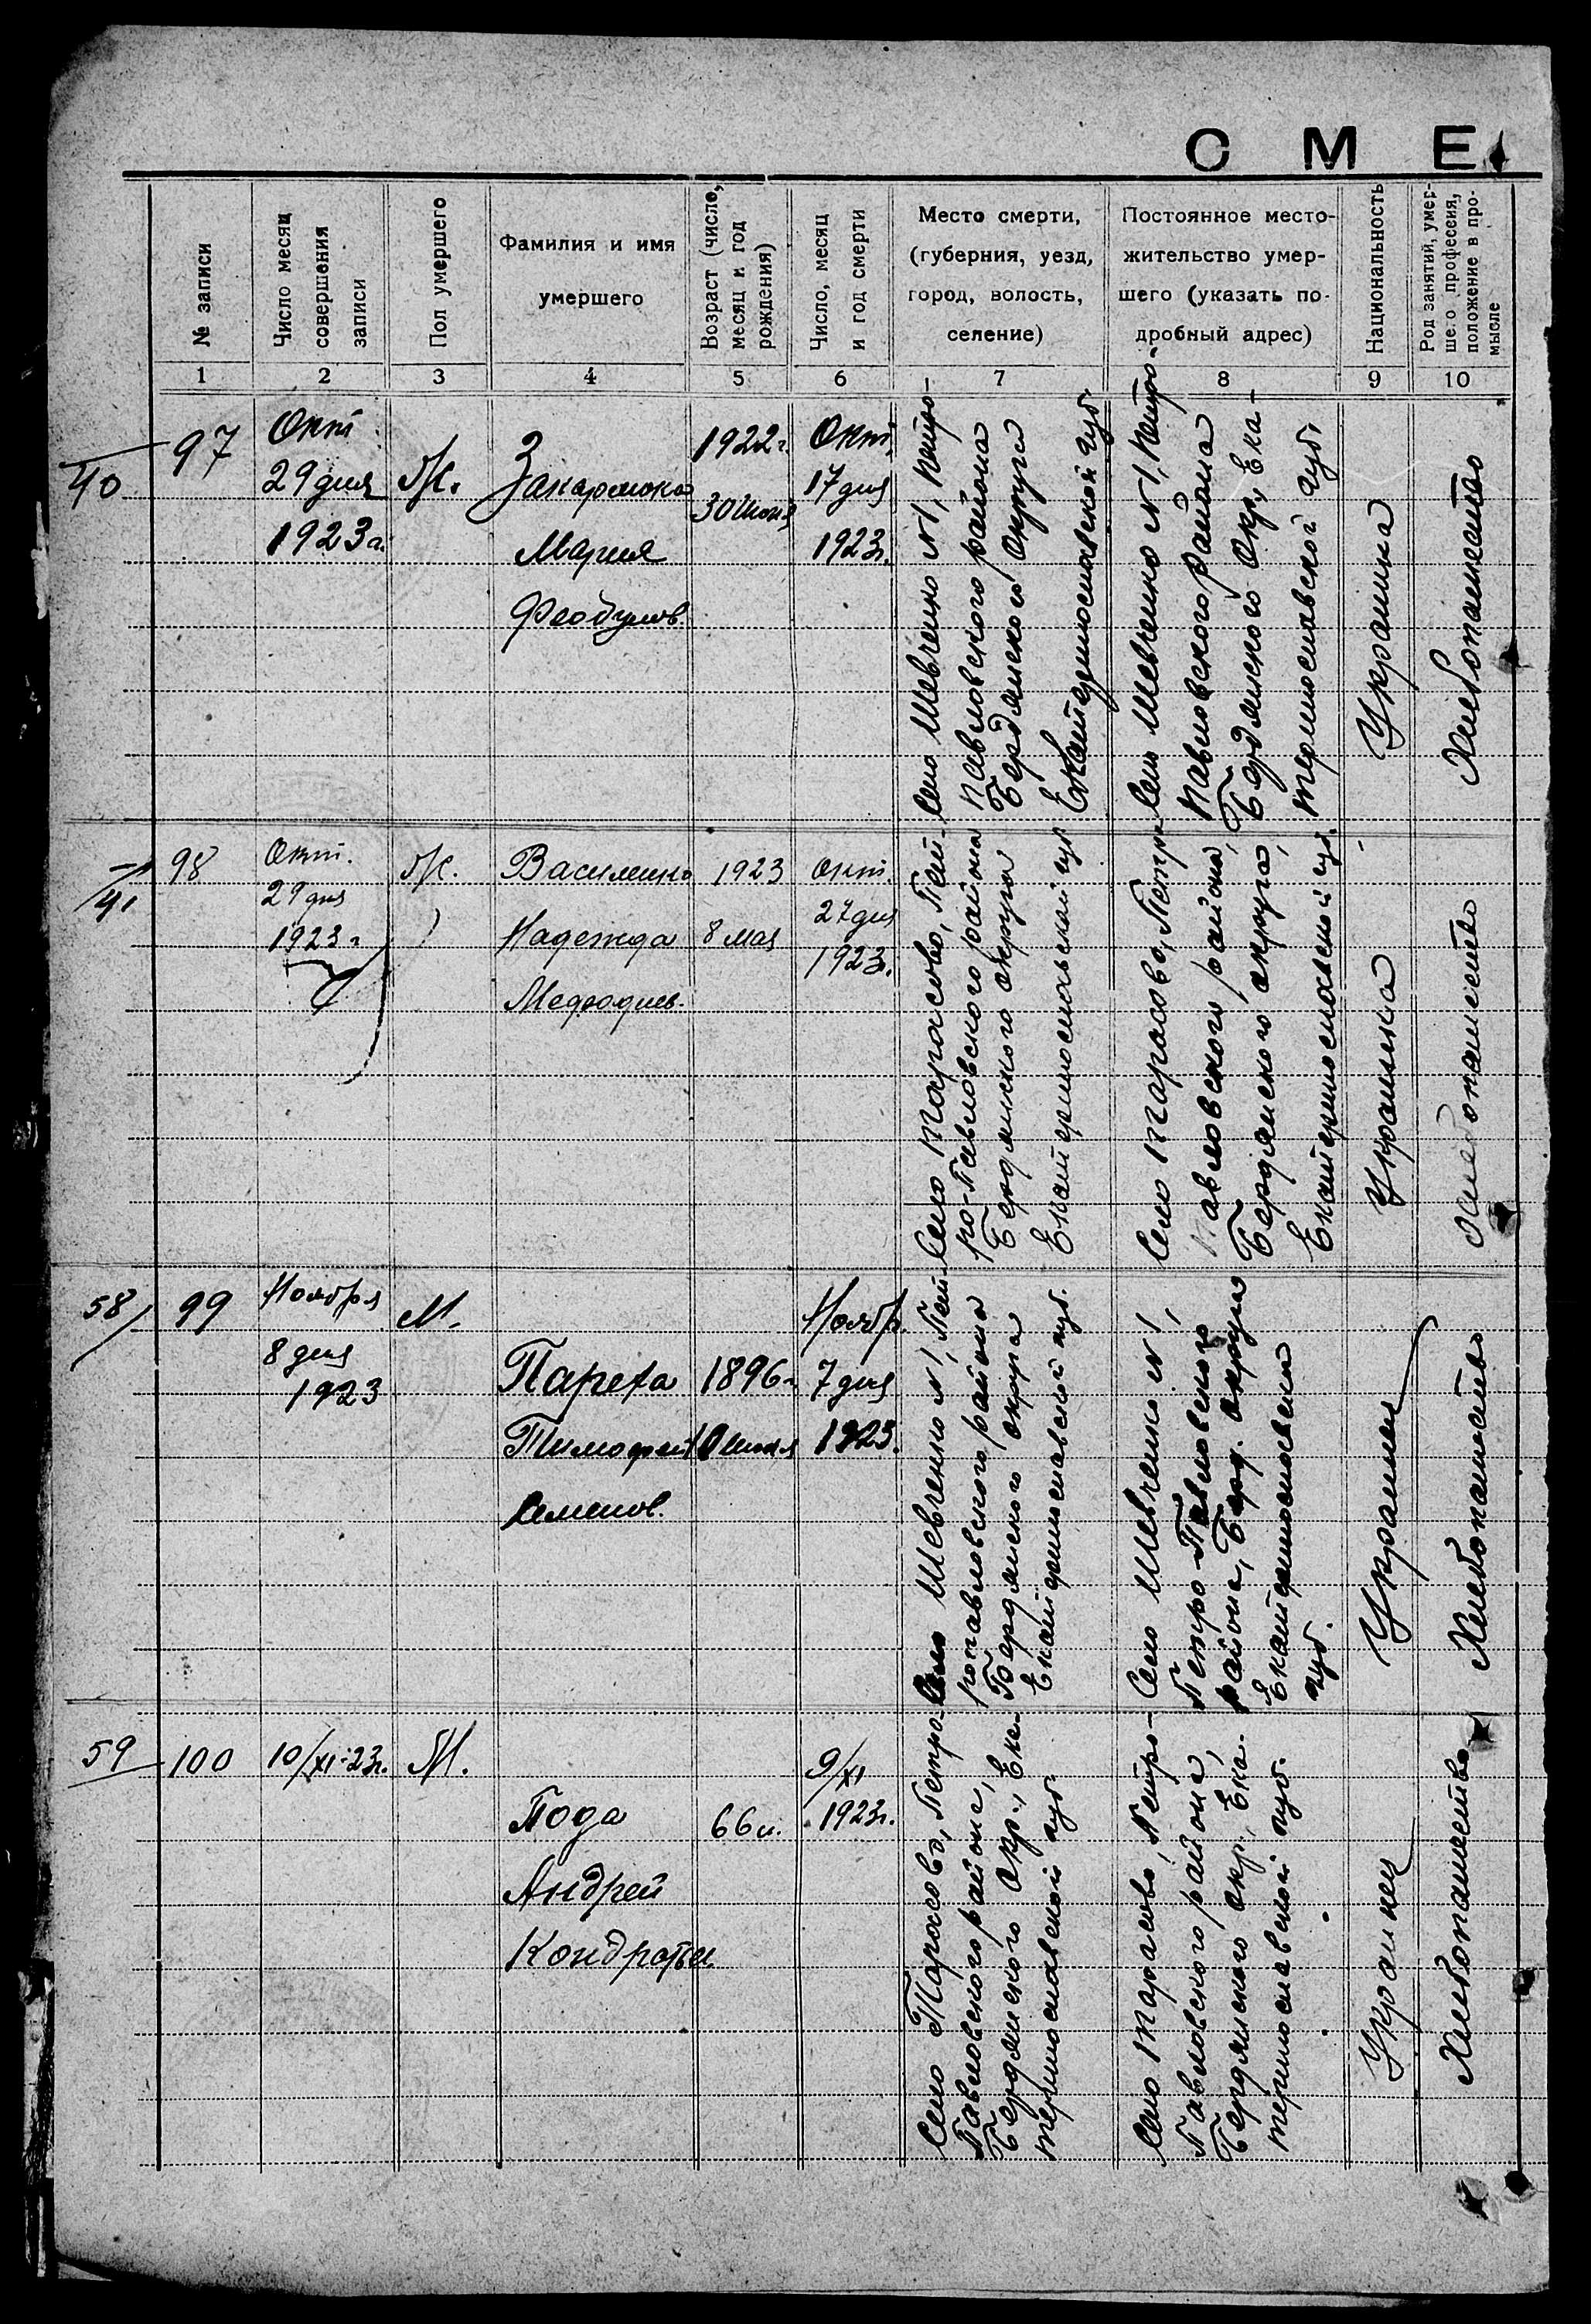 СМЕ
№ записи
Число месяц
совершения
записи
Пол умершего
Фамилия и имя
умершего
Возраст (число,
месяц и год
рождения)
Число, месяц
и год смерти
Место смерти,
(губерния, уезд,
город, волость,
селение)
Постоянное место-
жительство умер-
шего (указать по-
дробный адрес)
Национальность
Род занятий, умер-
шего профессия,
положение в про-
мысле
1 2 3 4 5 6 7 8 9 10
40
97
Окт
29 дня
1923 г.
Ж.
Захарченко
Мария
Феодулов.
1922 г.
30 Июня
Окт.
17 дня
1923 г.
Село Шевченко N1, Петро-
павловского района
Бердянского округа
Екатеринославской губ.
Село Шевченко N1, Петро-
павловского района
Бердянского Окр., Ека-
теринославской губ.
Украинка
Хлебопашество
41
98
Окт.
29 дня
1923 г.
Ж.
Василенко
Надежда
Мефодиев.
1923
8 мая
Окт.
27 дня
1923 г.
Село Тарасово, Пет-
ро-Павловского района
Бердянского округа
Екатеринославской губ.
Село Тарасово, Петро-
Павловского района,
Бердянского округа,
Екатеринославской губ.
Украинка
Хлебопашество
58
99
Ноября
8 дня
1923
М.
Тимофей
Семенов.
1896 г.
Ноябр.
7 дня
1923.
Село Шевченко N1, Пет-
ропавловского района
Бердянского округа
Екатеринославской губ.
Село Шевченко N1,
Петро-Павловского
района, Берд. округа
Екатеринославской
губ.
Украинец
Хлебопашество
59
100
10/XI-23 г.
М.
Пода
Андрей
Кондратьев.
66 л.
9/XI
1923 г.
Село Тарасово, Петро-
Павловского района,
Бердянского Окр., Ека-
теринославской губ.
Село Тарасово, Петро-
Павловского района,
Бердянского окр., Ека-
теринославской губ.
Украинец
Хлебопашество